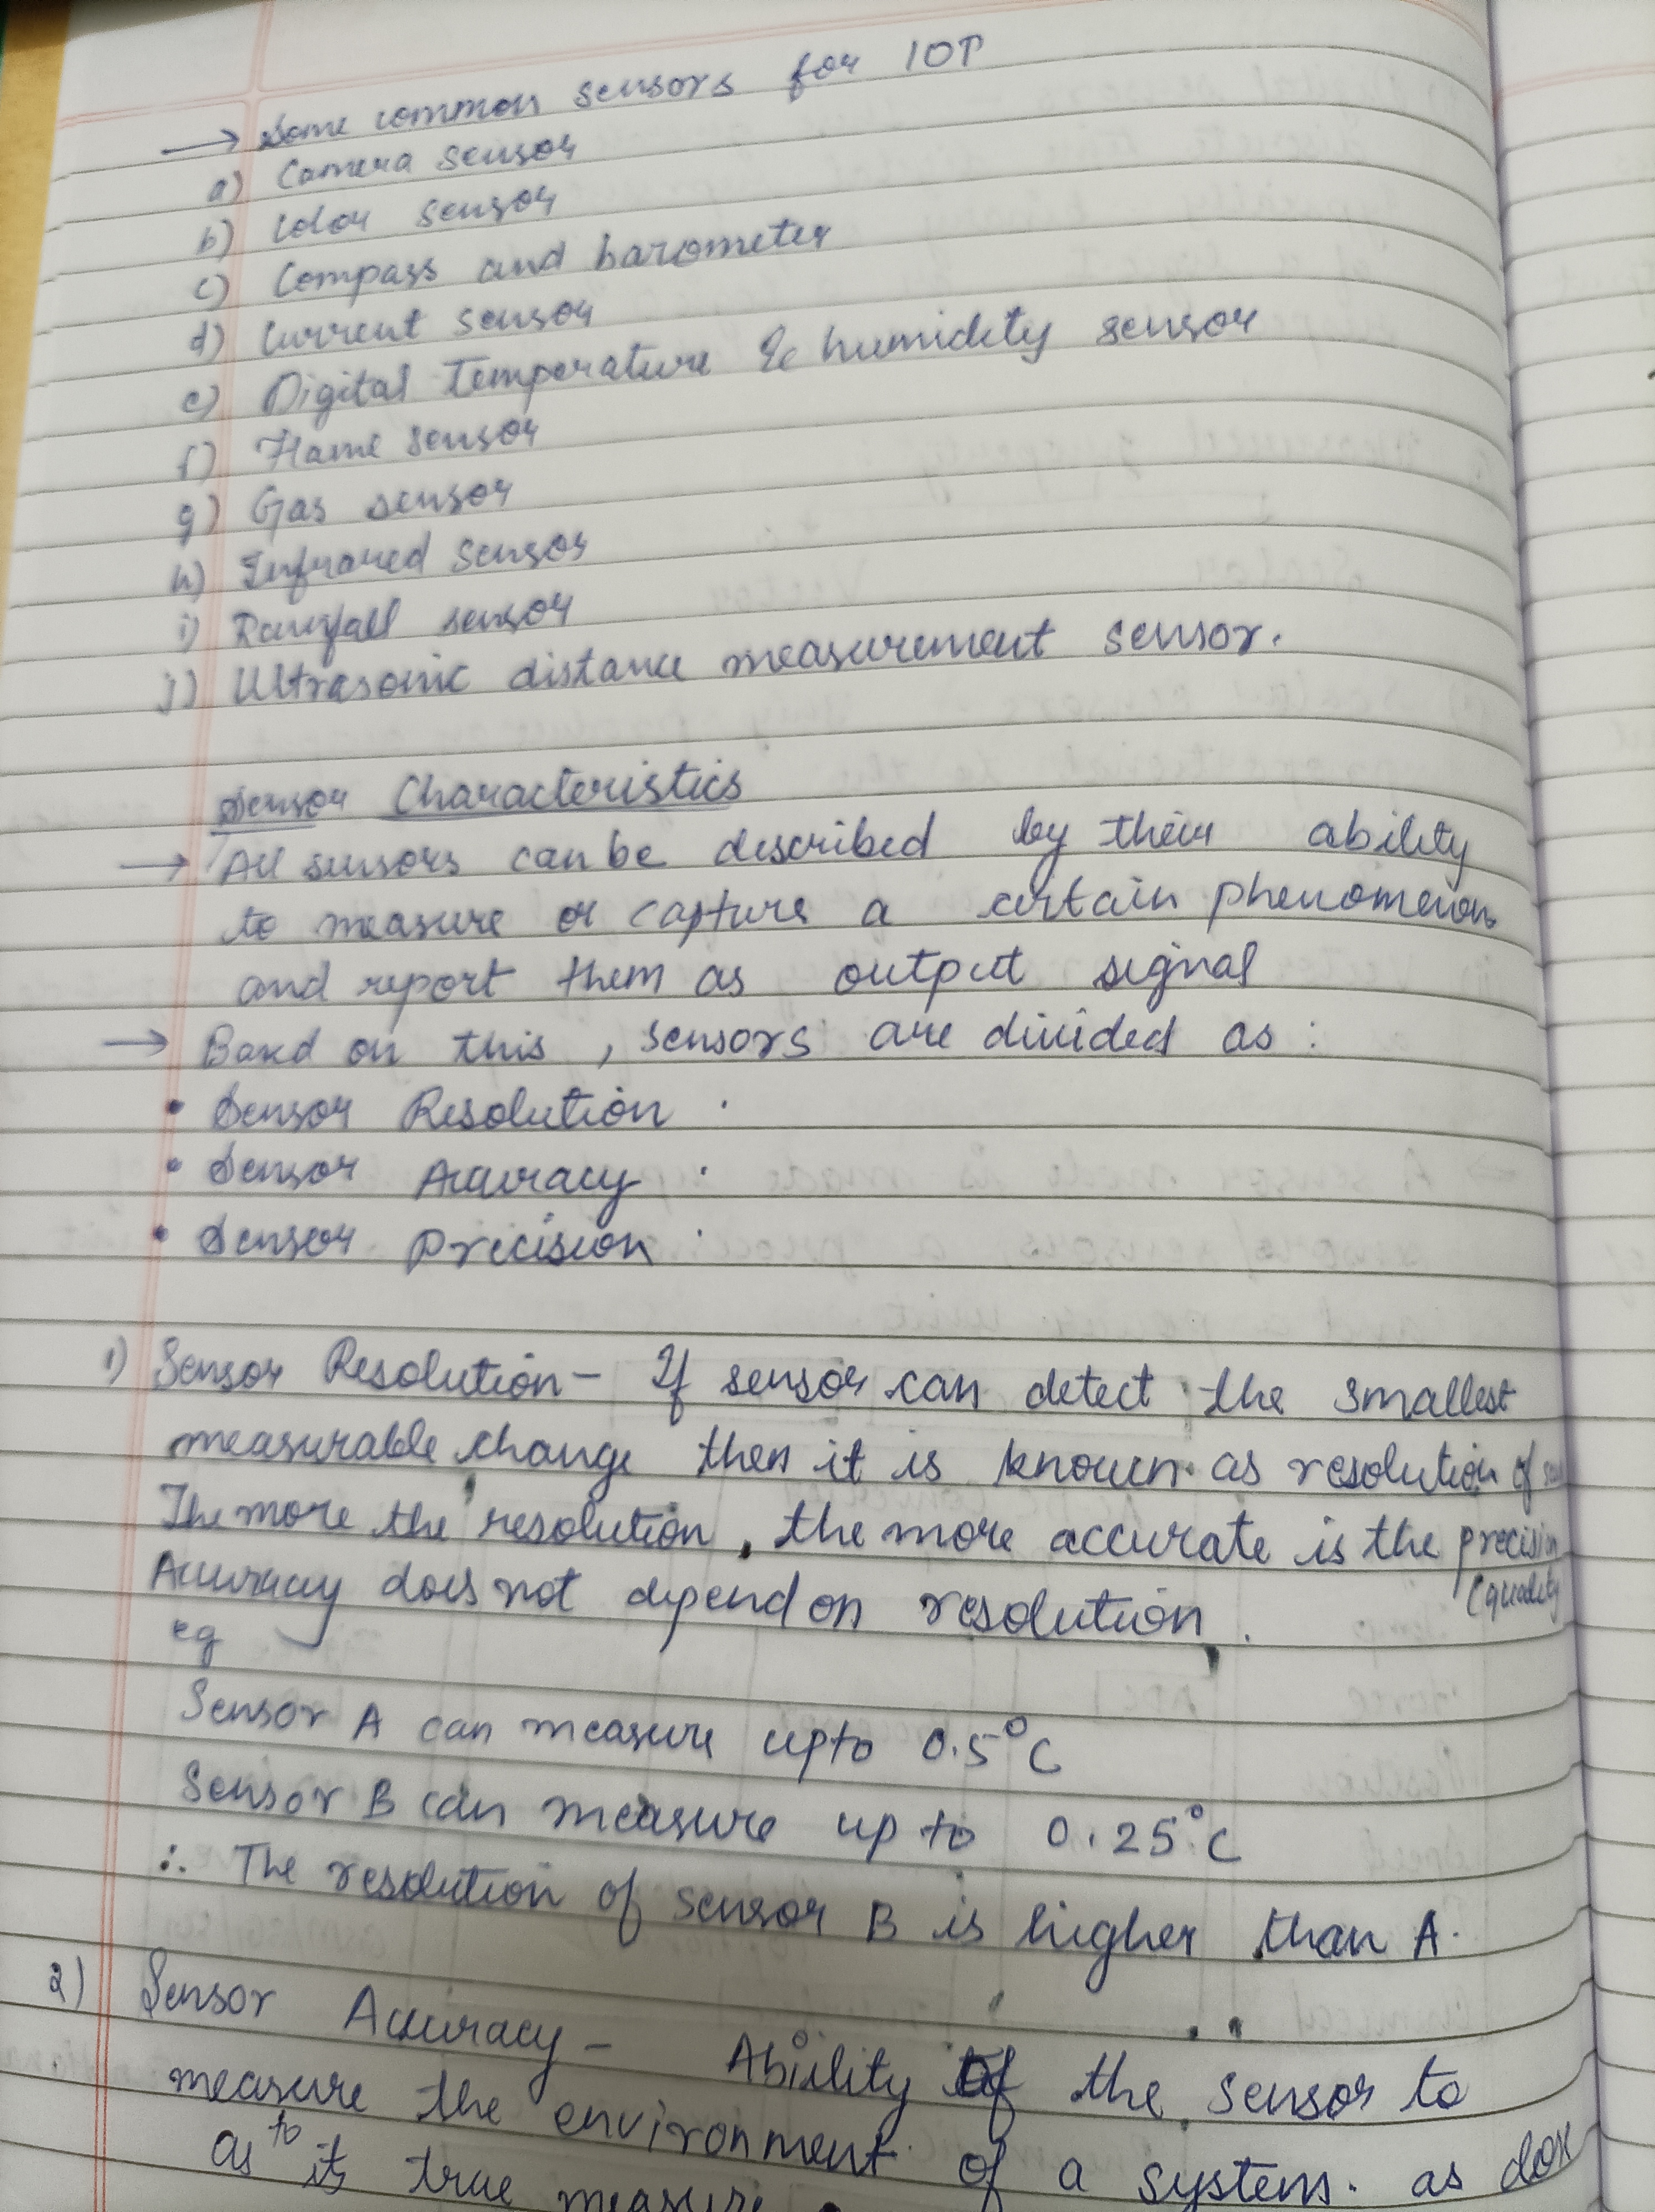 → Some common sensors for IOT
a) Camera sensor
b) Color sensor
c) Compass and barometer
d) Current sensor
e) Digital Temperature & humidity sensor
f) Flame sensor
g) Gas sensor
h) Infrared sensor
i) Rainfall sensor
j) Ultrasonic distance measurement sensor.
Sensor Characteristics
→ All sensors can be described by their ability
to measure or capture a certain phenomenon
and report them as output signal
→ Based on this, sensors are divided as :
• Sensor Resolution
• Sensor Accuracy
• Sensor precision
1) Sensor Resolution - If sensor can detect the smallest
measurable change then it is known as resolution of
The more the resolution, the more accurate is the precision
(quality
Accuracy does not depend on resolution.
eg
Sensor A can measure upto 0.5°C
Sensor B can measure up to 0.25°C
∴ The resolution of sensor B is higher than A.
2) Sensor Accuracy - Ability of the sensor to
measure the environment of a system. as
as to its true measure